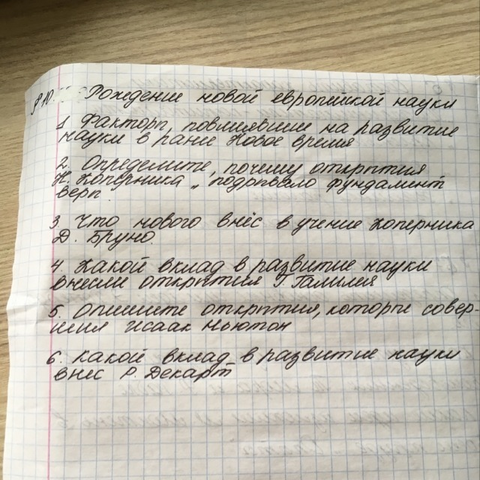 Рождение новой европейской науки
1. Факторы, повлиявшие на развитие
науки в ранне Новое время
2. Определите, почему открытия
Н. Коперника „ подорвало фундамент
веры
3 Что нового внёс в учение Коперника
Д. Бруно
4 Какой вклад в развитие науки
внесли открытия Г Галилея
5. Опишите открытия, которые совер-
шил Исаак Ньютон
6. Какой вклад в развитие науки
внёс Р. Декарт